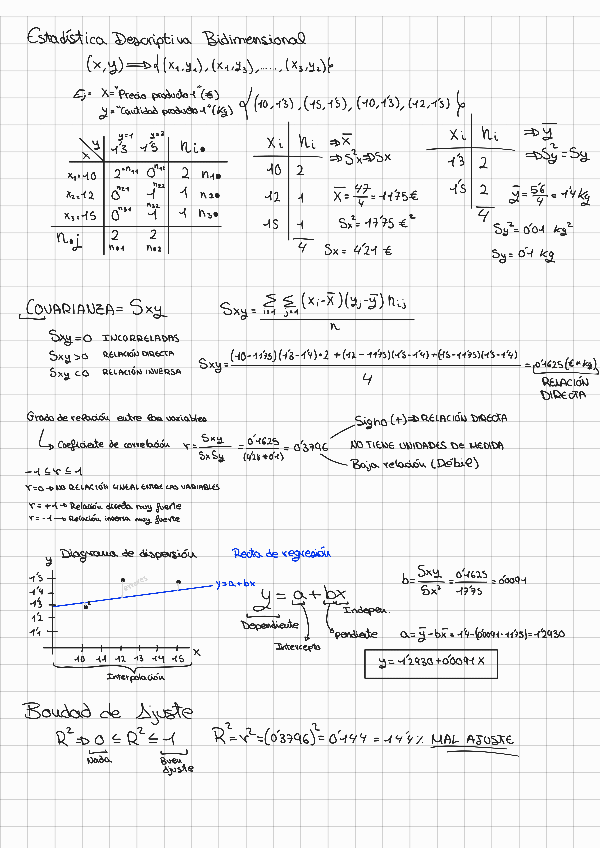 Estadística Descriptiva Bidimensional
(x,y) ⟹ {(x1,y1), (x1,y2), ....., (x3,y2)}
Ej: X="Precio producto 1" (€)
y="Cantidad producto 1" (kg) {(10,1'3), (15,1'5), (10,1'3), (12,1'5)}
y=1 y=2
X\Y 1'3 1'5 ni•
x1=10 2 n11 0 n12 2 n1•
x2=12 0 n21 1 n22 1 n2•
x3=15 0 n31 1 n32 1 n3•
n•j 2 n•1 2 n•2
Xi ni ⇒ X̄
⇒ S²x ⇒ Sx
10 2
12 1 X̄ = 47/4 = 11'75 €
15 1 Sx² = 17'75 €²
4 Sx = 4'21 €
Xi ni ⇒ ȳ
⇒ Sy² = Sy
1'3 2
1'5 2 ȳ = 5'6/4 = 1'4 kg
4 Sy² = 0'01 kg²
Sy = 0'1 kg
COVARIANZA = Sxy
Sxy = Σ i=1 Σ j=1 (xi-x̄)(yj-ȳ) nij / n
Sxy=0 INCORRELADAS
Sxy>0 RELACIÓN DIRECTA
Sxy<0 RELACIÓN INVERSA
Sxy = (10-11'75)(1'3-1'4)·2 + (12-11'75)(1'5-1'4)+(15-11'75)(1'5-1'4) / 4 = 0'1625 (€*kg)
RELACIÓN
DIRECTA
Grado de relación entre las variables
↳ Coeficiente de correlación r = Sxy/SxSy = 0'1625/(4'21*0'1) = 0'3796
Signo (+) ⇒ RELACIÓN DIRECTA
NO TIENE UNIDADES DE MEDIDA
Baja relación (Débil)
-1 ≤ r ≤ 1
r=0 → NO RELACIÓN LINEAL ENTRE LAS VARIABLES
r = +1 → Relación directa muy fuerte
r = -1 → Relación inversa muy fuerte
Diagrama de dispersión
Recta de regresión
y
1'5
1'4
1'3
1'2
1'1
10 11 12 13 14 15 X
Interpolación
y=a+bx
y = a + bx
Dependiente
Intercepto
pendiente
Indepen.
b = Sxy/Sx² = 0'1625/17'75 = 0'0091
a = ȳ - bx̄ = 1'4-(0'0091·11'75)=1'2930
y = 1'2930+0'0091 X
Bondad de Ajuste
R² ⇒ 0 ≤ R² ≤ 1
Nada
Buen
ajuste
R² = r² = (0'3796)² = 0'144 = 14'4% MAL AJUSTE